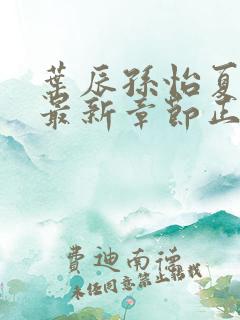 葉辰孫怡夏
最新章節正
費迪南德
未经同意禁止转载